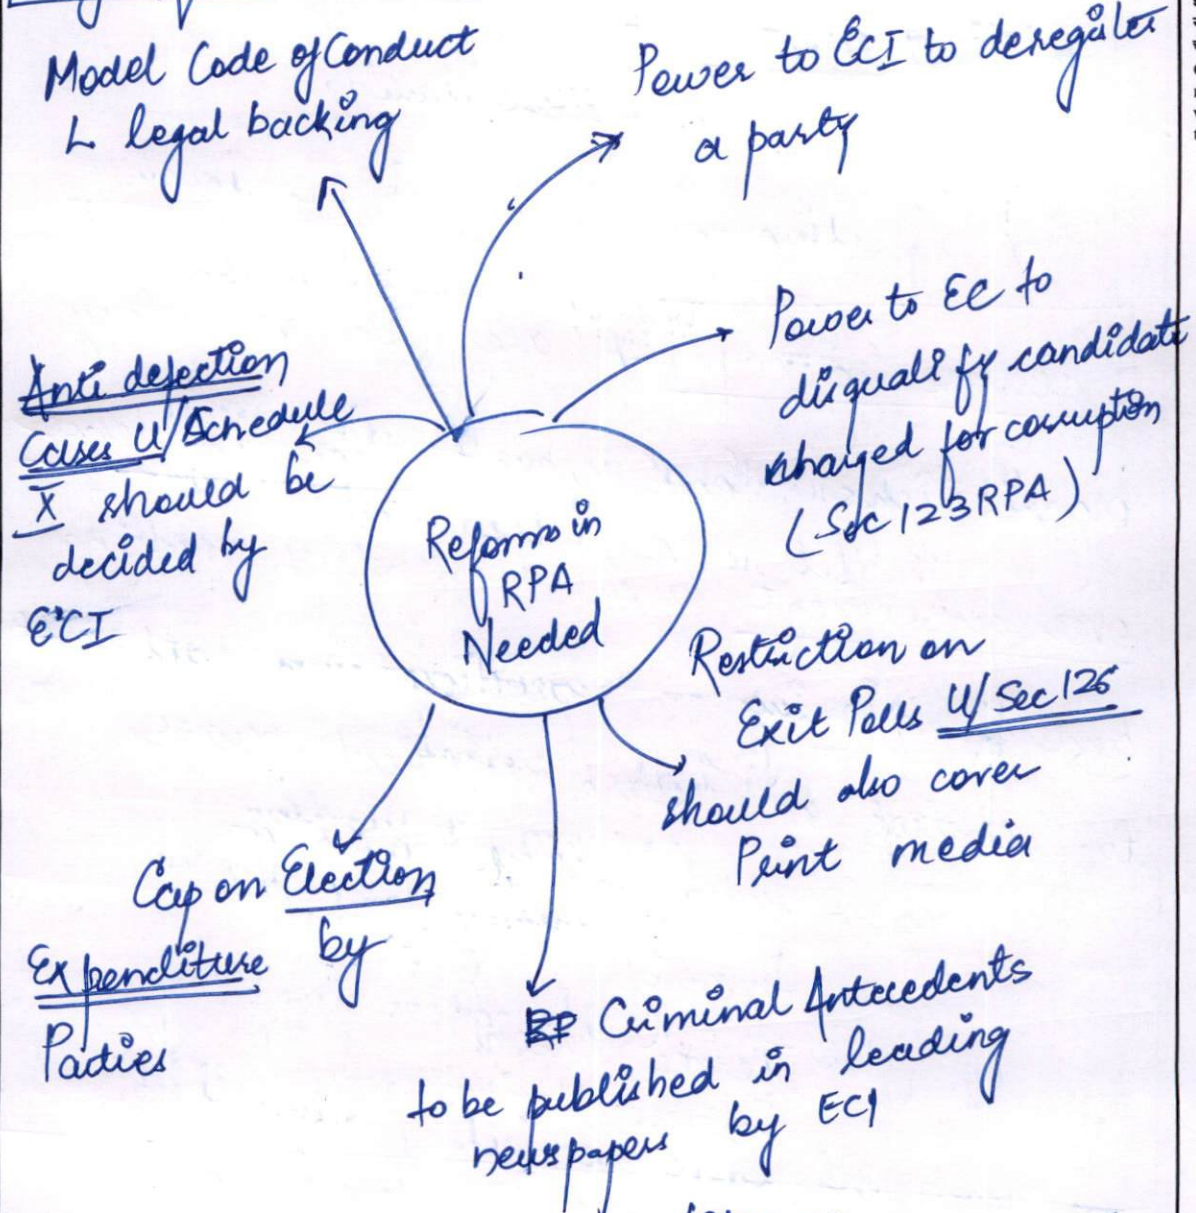 Model Code of Conduct
L legal backing
Power to ECI to deregister
a party
Power to EC to
disqualify candidate
charged for corruption
(Sec 123 RPA)
Anti defection
Cases U/Schedule
X should be
decided by
ECI
Reforms in
RPA
Needed
Restriction on
Exit Polls U/Sec 126
should also cover
Print media
Cap on Election
Expenditure by
Parties
Criminal Antecedents
to be published in leading
newspapers by ECI